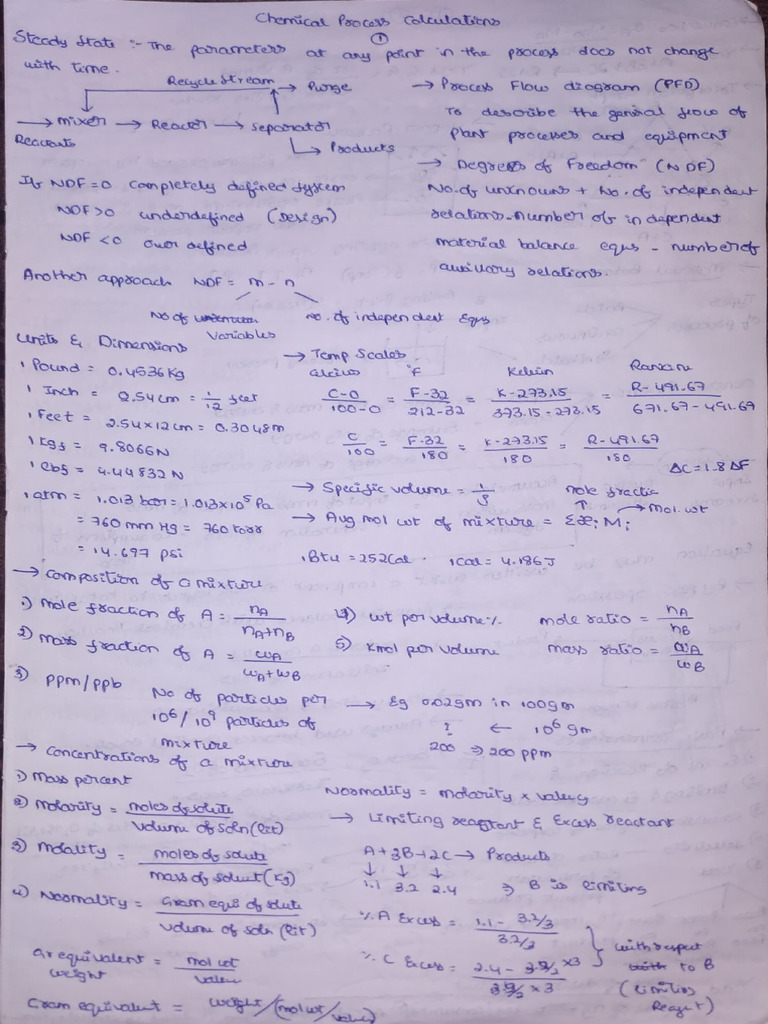 Chemical Process Calculations
①
Steady State :- The parameters at any point in the process does not change
with time.
Recycle Stream → Purge
→ Mixer → Reactor → Separator
Reactants
→ Products
→ Process Flow diagram (PFD)
To describe the general flow of
plant processes and equipment
→ Degrees of Freedom (NDF)
No. of unknowns + No. of independent
relations - number of independent
material balance eqns - number of
auxiliary relations.
If NDF = 0 completely defined system
NDF > 0 underdefined (Design)
NDF < 0 over defined
Another approach NDF = m - n
No of Variables
no. of independent Eqns
Units & Dimensions
1 Pound = 0.4536 Kg
1 Inch = 2.54 cm = 1/12 feet
1 Feet = 2.54 x 12 cm = 0.3048 m
1 Kgf = 9.8066 N
1 lbf = 4.44832 N
1 atm = 1.013 bar = 1.013 x 10⁵ Pa
= 760 mm Hg = 760 torr
= 14.697 psi
→ Temp Scales
Celcius °F Kelvin Rankine
C-0/100-0 = F-32/212-32 = K-273.15/373.15-273.15 = R-491.67/671.67-491.67
C/100 = F-32/180 = K-273.15/180 = R-491.67/180
ΔC = 1.8 ΔF
→ Specific volume = 1/ρ
mole fractio
→ Avg mol wt of mixture = Σxᵢ Mᵢ → Mol. wt
1 Btu = 252 Cal. 1 Cal = 4.186 J
→ Composition of a mixture
1) Mole fraction of A = nA/nA+nB
2) Mass fraction of A = ωA/ωA+ωB
3) ppm/ppb No of particles per
10⁶/10⁹ particles of
mixture
4) wt per volume %
5) Kmol per volume
mole ratio = nA/nB
mass ratio = ωA/ωB
→ Eg 0.02 gm in 100 gm
? ← 10⁶ gm
200 ⇒ 200 ppm
→ Concentrations of a mixture
1) Mass percent
2) Molarity = moles of solute/Volume of soln (lit)
3) Molality = moles of solute/mass of solvent (Kg)
4) Normality = Gram equi of solute/Volume of soln (lit)
gr equivalent weight = mol wt/valen
Gram equivalent = weight/(mol wt/valen)
Normality = Molarity x valency
→ Limiting reactant & Excess reactant
A + 3B + 2C → Products
1.1 3.2 2.4 ⇒ B is limiting
% A Excess = 1.1 - 3.2/3 / 3.2/3
% C Excess = 2.4 - 3.2/3 x 3 / 3.2/3 x 3
with respect
to B
(limiting
Reagent)